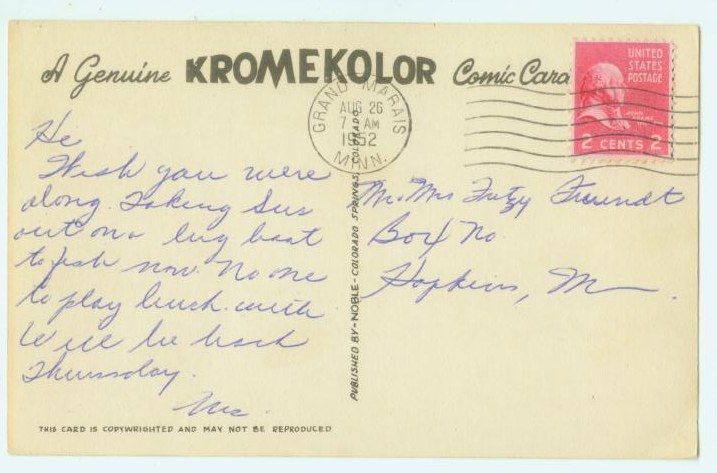 A Genuine KROMEKOLOR Comic Card
UNITED
STATES
POSTAGE
JOHN ADAMS
2 CENTS 2
GRAND MARAIS
AUG 26
7 AM
1952
MINN.
He
Wish you were
along. Taking Sus
out on a big boat
to fish now. No one
to play buck with
Will be back
Thursday.
Mr. Mrs Fritzy
Box No.
Hopkins, M
PUBLISHED BY-NOBLE-COLORADO SPRINGS, COLORADO
THIS CARD IS COPYWRIGHTED AND MAY NOT BE REPRODUCED